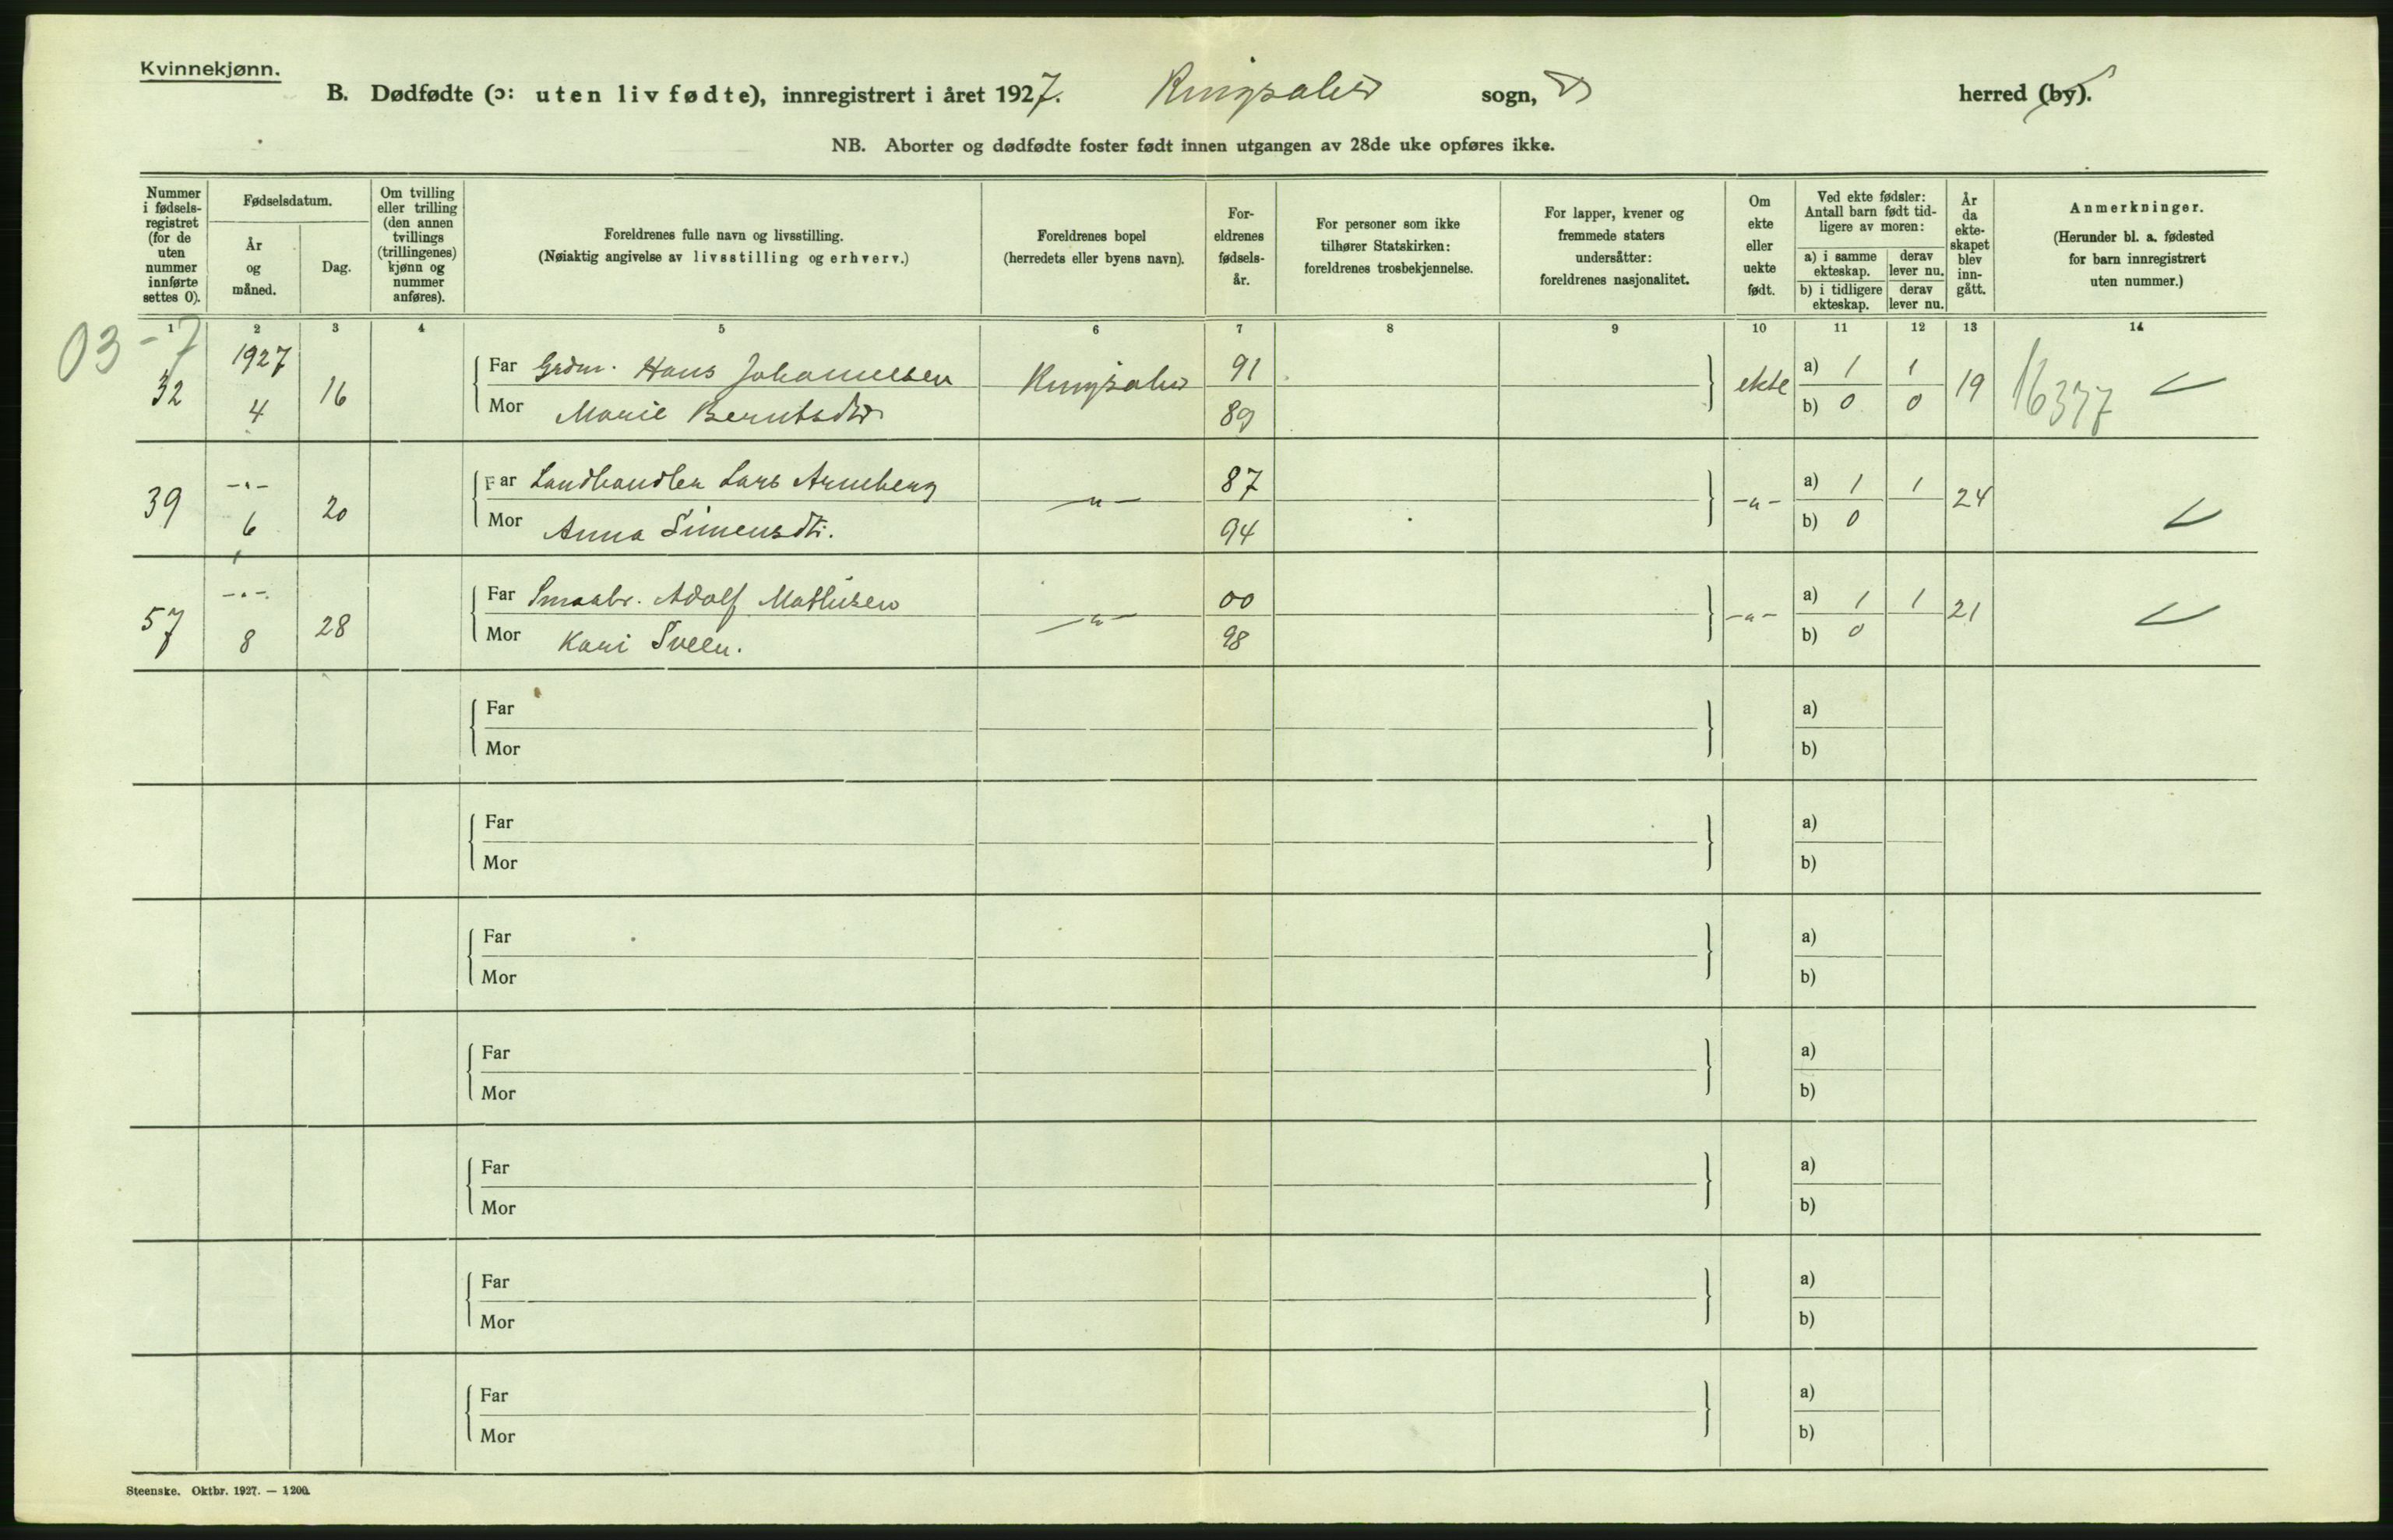 Kvinnekjønn.
B. Dødfødte (ɔ: uten liv fødte), innregistrert i året 1927. Ringsaker sogn, herred (by).
NB. Aborter og dødfødte foster født innen utgangen av 28de uke opføres ikke.
Nummer i fødsels- registret (for de uten nummer innførte settes 0).
Fødselsdatum.
År og måned.
Dag.
Om tvilling eller trilling (den annen tvillings (trillingenes) kjønn og nummer anføres).
Foreldrenes fulle navn og livsstilling.
(Nøiaktig angivelse av livsstilling og erhverv.)
Foreldrenes bopel
(herredets eller byens navn).
For- eldrenes fødsels- år.
For personer som ikke tilhører Statskirken: foreldrenes trosbekjennelse.
For lapper, kvener og fremmede staters undersåtter: foreldrenes nasjonalitet.
Om ekte eller uekte født.
Ved ekte fødsler: Antall barn født tid- ligere av moren:
a) i samme ekteskap.
derav lever nu.
b) i tidligere ekteskap.
derav lever nu.
År da ekte- skapet blev inn- gått.
Anmerkninger.
(Herunder bl. a. fødested for barn innregistrert uten nummer.)
1 2 3 4 5 6 7 8 9 10 11 12 13 14
03-7
32 1927 4 16 Far Grdm. Hans Johannessen Ringsaker 91 ekte a) 1 1 19 16377
Mor Marie Berntsdtr 89 b) 0 0
39 -"- 6 20 Far Landhandler Lars Arneberg -"- 87 -"- a) 1 1 24
Mor Anna Simensdtr. 94 b) 0
57 -"- 8 28 Far Smaabr. Adolf Mathisen -"- 00 -"- a) 1 1 21
Mor Kari Sveen. 98 b) 0
Far a)
Mor b)
Far a)
Mor b)
Far a)
Mor b)
Far a)
Mor b)
Far a)
Mor b)
Far a)
Mor b)
Far a)
Mor b)
Steenske. Oktbr. 1927. — 1200.